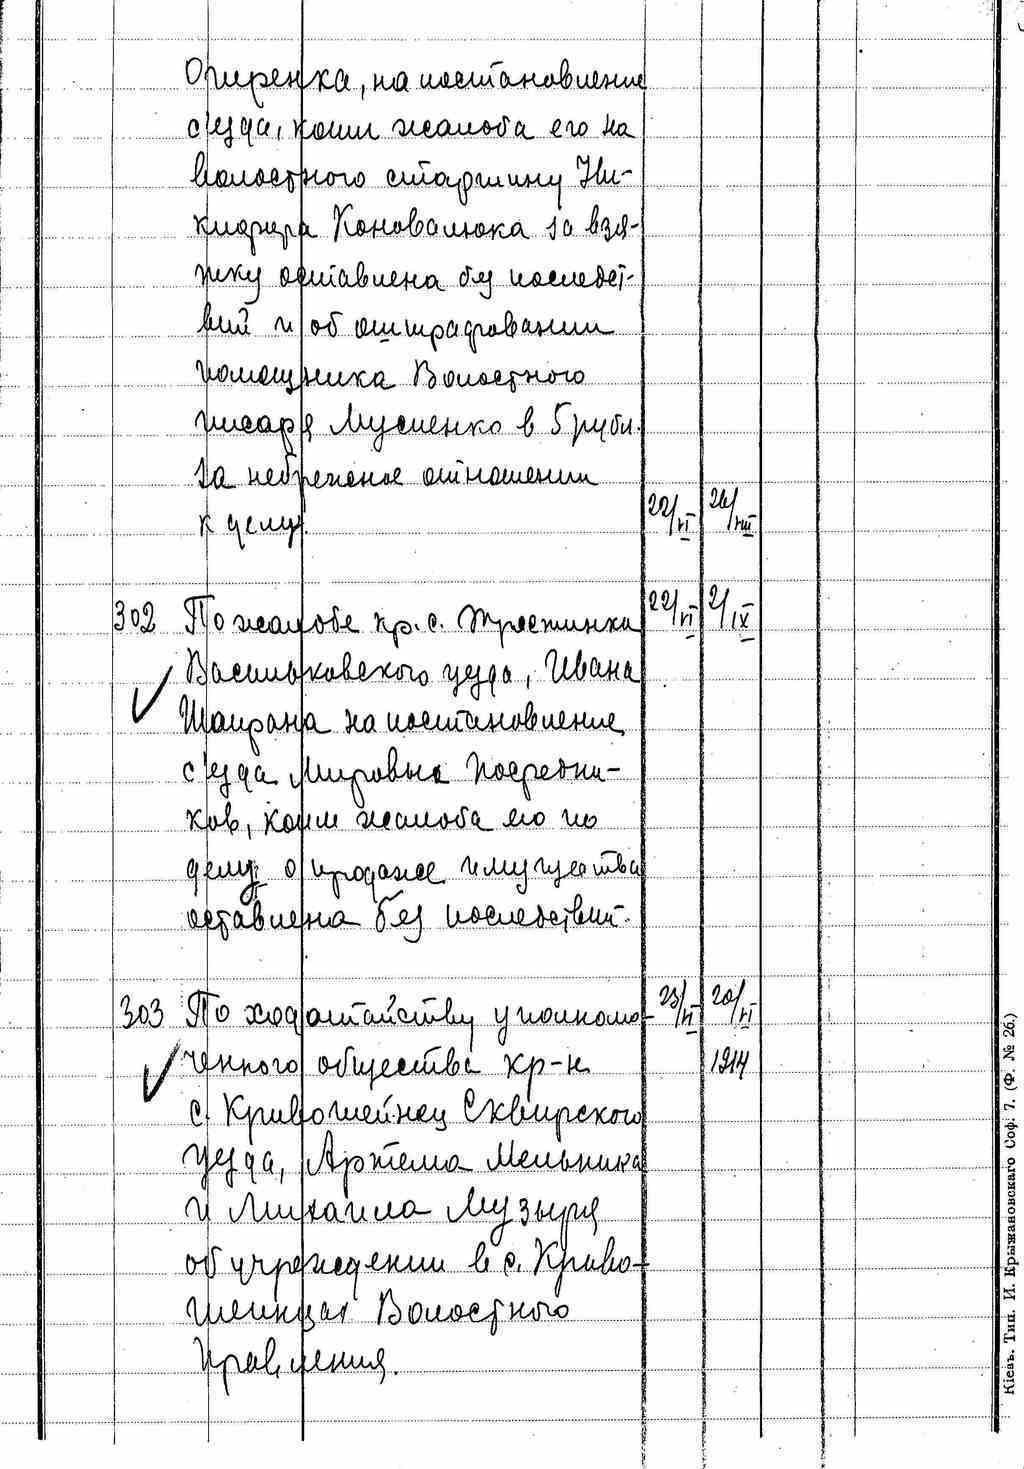 Огиренка, на постановление
с'езда, коим жалоба его на
волостного старшину Ни-
кифора Коновалюка за взя-
тку оставлена без последст-
вий и об оштрафовании
помощника Волостного
писаря Мусиенко в 5 рубл.
за небрежное отношении
к делу. 22/VI 26/VIII
302 По жалобе кр. с. Васильковского уезда, Ивана
на постановление
с'езда Мировых Посредни-
ков, коим жалоба его по
делу о продаже имущества
оставлена без последствий.
22/VI 2/IX
303 По ходатайству уполномо- 23/VI 20/VI
ченного общества кр-н 1914
с. Кривошеинец Сквирского
уезда, Артема Мельника
и Михаила Музыря
об учреждении в с. Криво-
шеинцах Волостного
Правления.
Кіевъ. Тип. И. Крыжановскаго Соф. 7. (Ф. № 26.)